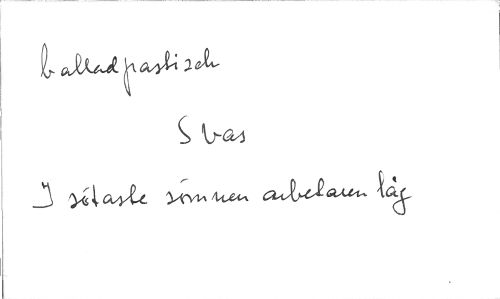 balladpastisch
S vas
I sötaste sömnen arbetaren låg